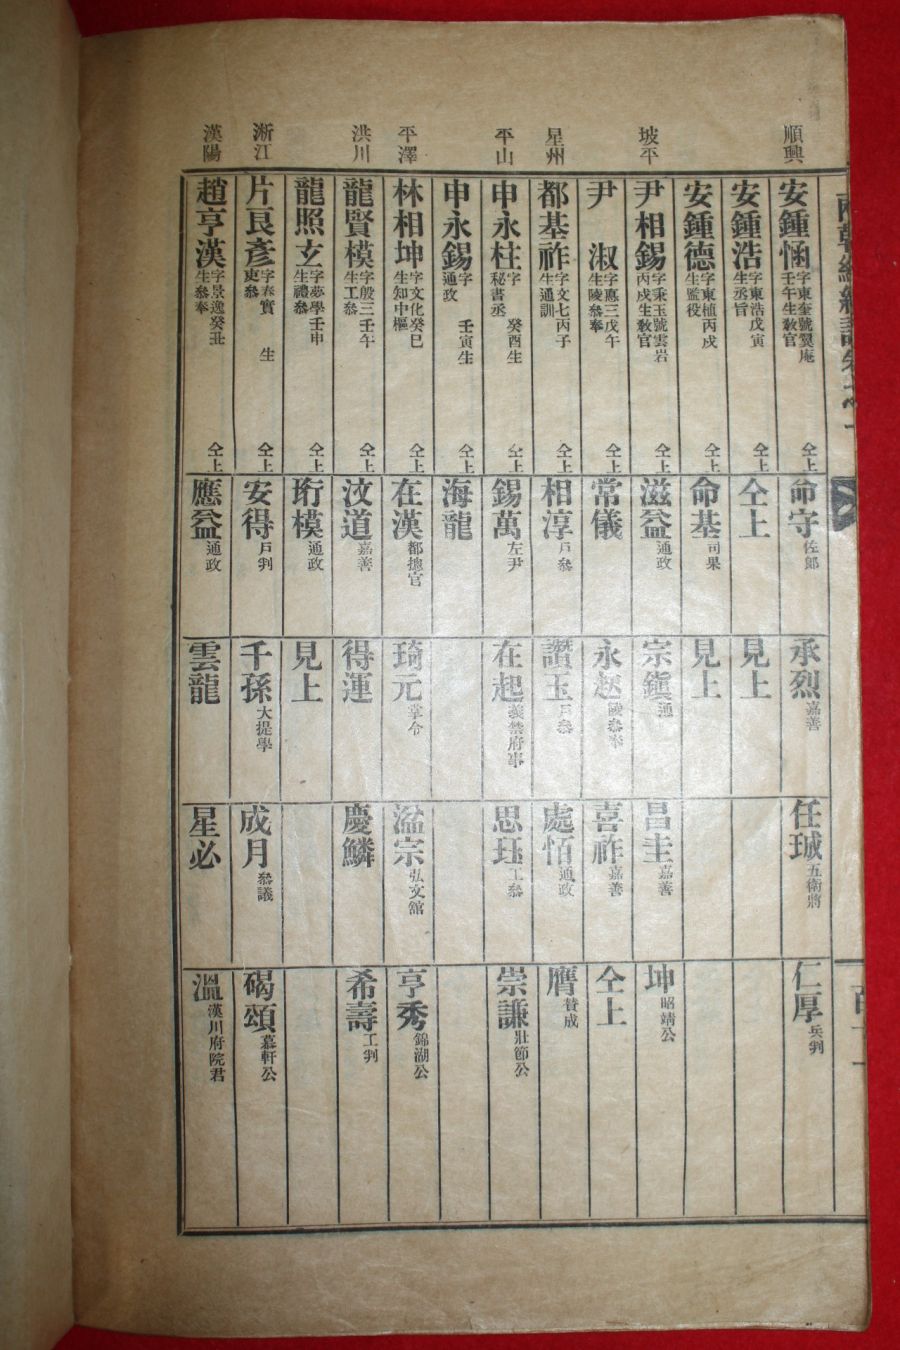 順興
安鍾涵 字東奎號翼庵 壬午生教官 仝上
命守 佐郞
承烈 嘉善
任珹 五衛將
仁厚 兵判
安鍾浩 字東浩戊寅 生丞旨 仝上
仝上
見上
安鍾德 字東植丙戌 生監役 仝上
命基 司果
見上
坡平
尹相錫 字秉玉號雲岩 丙戌生教官 仝上
滋益 通政
宗鎭 通
昌圭 嘉善
坤 昭靖公
尹 淑 字惠三戊午 生陵叅奉 仝上
常儀
永赵 陵叅奉
喜祚 嘉善
仝上
星州
都基祚 字文七丙子 生通訓 仝上
相淳 戶叅
讚玉 戶叅
處恒 通政
膺 贊成
平山
申永柱 字 癸酉生 秘書丞 仝上
錫萬 左尹
在起 義禁府事
思珏 工叅
崇謙 壯節公
申永錫 字 壬寅生 通政 仝上
海龍
平澤
林相坤 字文化癸巳 生知中樞 仝上
在漢 都摠官
琦元 掌令
溢宗 弘文館
亨秀 錦湖公
洪川
龍賢模 字殷三壬午 生工叅 仝上
汶道 嘉善
得運
慶鱗
希壽 工判
龍照玄 字夢學壬申 生禮叅 仝上
珩模 通政
見上
淅江
片良彥 字春實 生 東叅 仝上
安得 戶判
千孫 大提學
成月 叅議
碣頌 慕軒公
漢陽
趙亨漢 字景逸癸丑 生叅奉 仝上
應益 通政
雲龍
星必
溫 漢川府院君